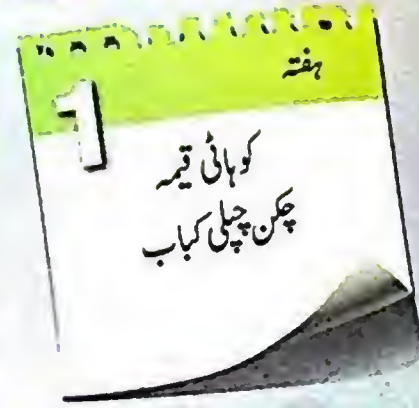 ہفتہ
1
کوہاٹی قیمہ
چکن چپلی کباب